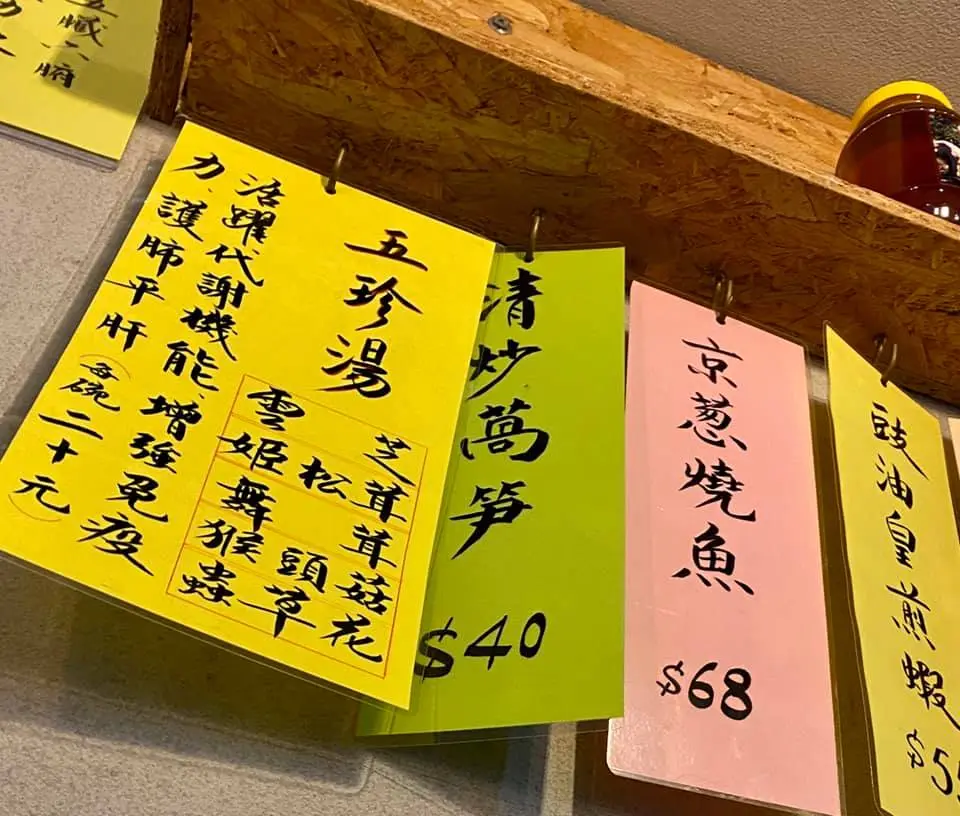 五臟六腑
五珍湯
雪芝
姬松茸
舞茸
猴頭菇
蟲草花
活躍代謝機能、增強免疫
力、護肺平肝（每碗二十元）
清炒蒿笋
$40
京葱燒魚
$68
豉油皇煎蝦